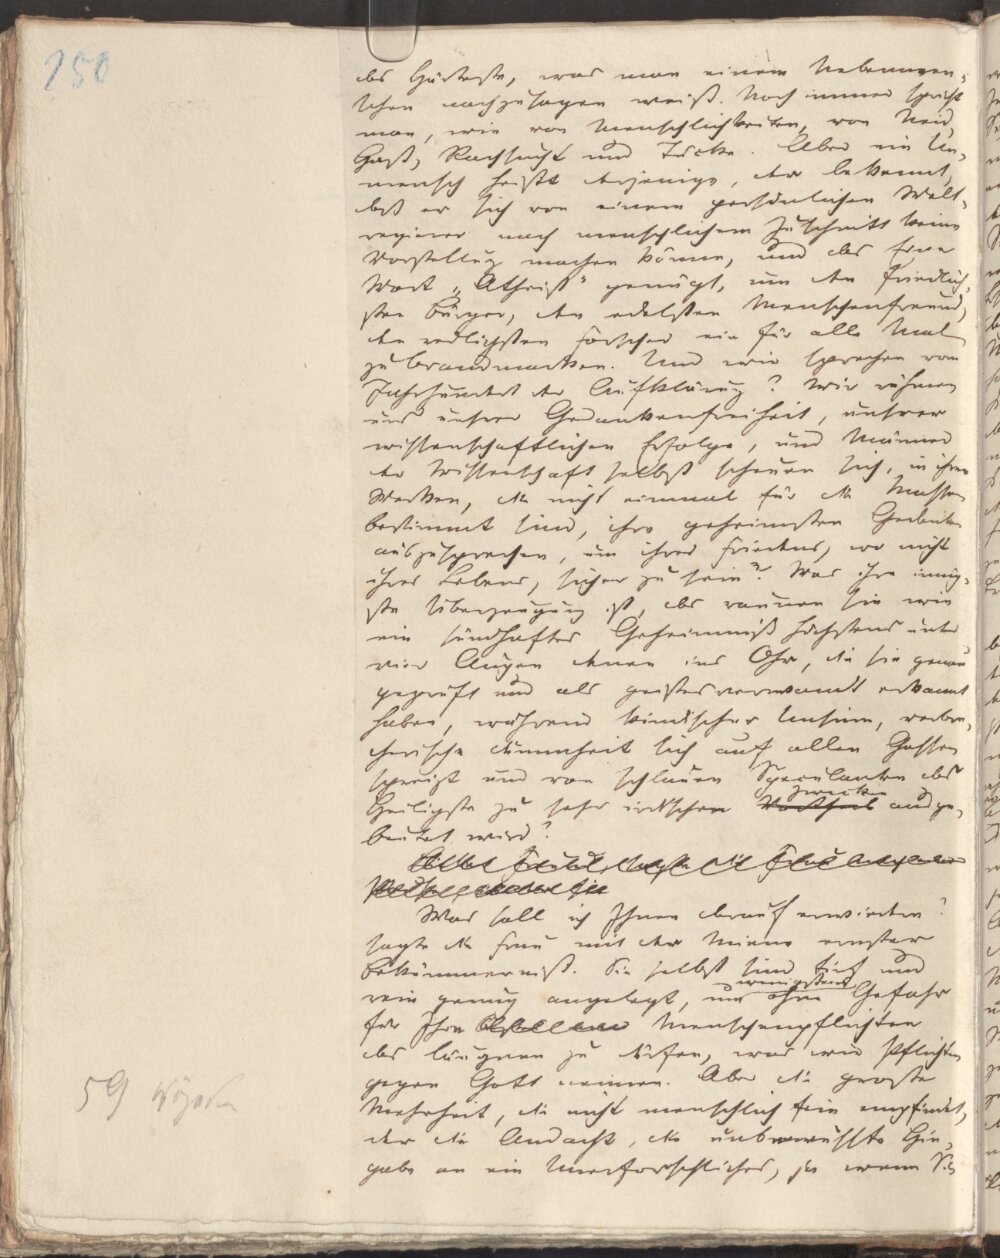 150
das Härteste, was man einem Nebenmen-
schen nachzusagen weiß. Noch immer spricht
man, wie von Menschlichkeiten, von Neid,
Haß, Rachsucht und Tücke. Aber ein Un-
mensch heißt derjenige, der bekennt,
daß er sich von einem persönlichen Welt-
regierer nach menschlichem Zuschnitt keine
Vorstellung machen könne, und das Eine
Wort „Atheist" genügt, um den friedlich-
sten Bürger, den edelsten Menschenfreund,
den redlichsten Forscher ein für alle Mal
zu brandmarken. Und wir sprechen vom
Jahrhundert der Aufklärung? Wir rühmen
uns unsrer Gedankenfreiheit, unsrer
wissenschaftlichen Erfolge, und Männer
der Wissenschaft selbst scheuen sich, in ihren
Werken, die nicht einmal für die Massen
bestimmt sind, ihre geheimsten Gedanken
auszusprechen, um ihres Friedens, wo nicht
ihres Lebens, sicher zu sein? Was ihre innig-
ste Überzeugung ist, das raunen sie wie
ein sündhaftes Geheimniß höchstens unter
vier Augen denen ins Ohr, die sie genau
geprüft und als geistesverwandt erkannt
haben, während kindischer Unsinn, verbre-
cherische Dummheit sich auf allen Gassen
spreizt und von schlauen Speculanten das
Heiligste zu sehr irdischen Zwecken ausge-
beutet wird?
Was soll ich Ihnen darauf erwiedern?
sagte die Frau mit der Miene ernster
Bekümmerniß. Sie selbst sind tief und
rein genug angelegt, um wenigstens ohne Gefahr
für Ihre Menschenpflichten
das läugnen zu dürfen, was wir Pflichten
gegen Gott nennen. Aber die große
Mehrheit, die nicht menschlich fein empfindet,
der die Andacht, die unbewußte Hin-
gabe an ein Unerforschliches, ja wenn Sie
59